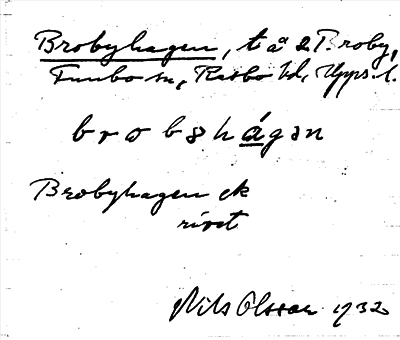 Brobyhagen, t å 2 Broby,
Funbo sn, Rasbo hd, Upps. l.
brobəhágən
Brobyhagen ek
rivet
Nils Olsson 1932